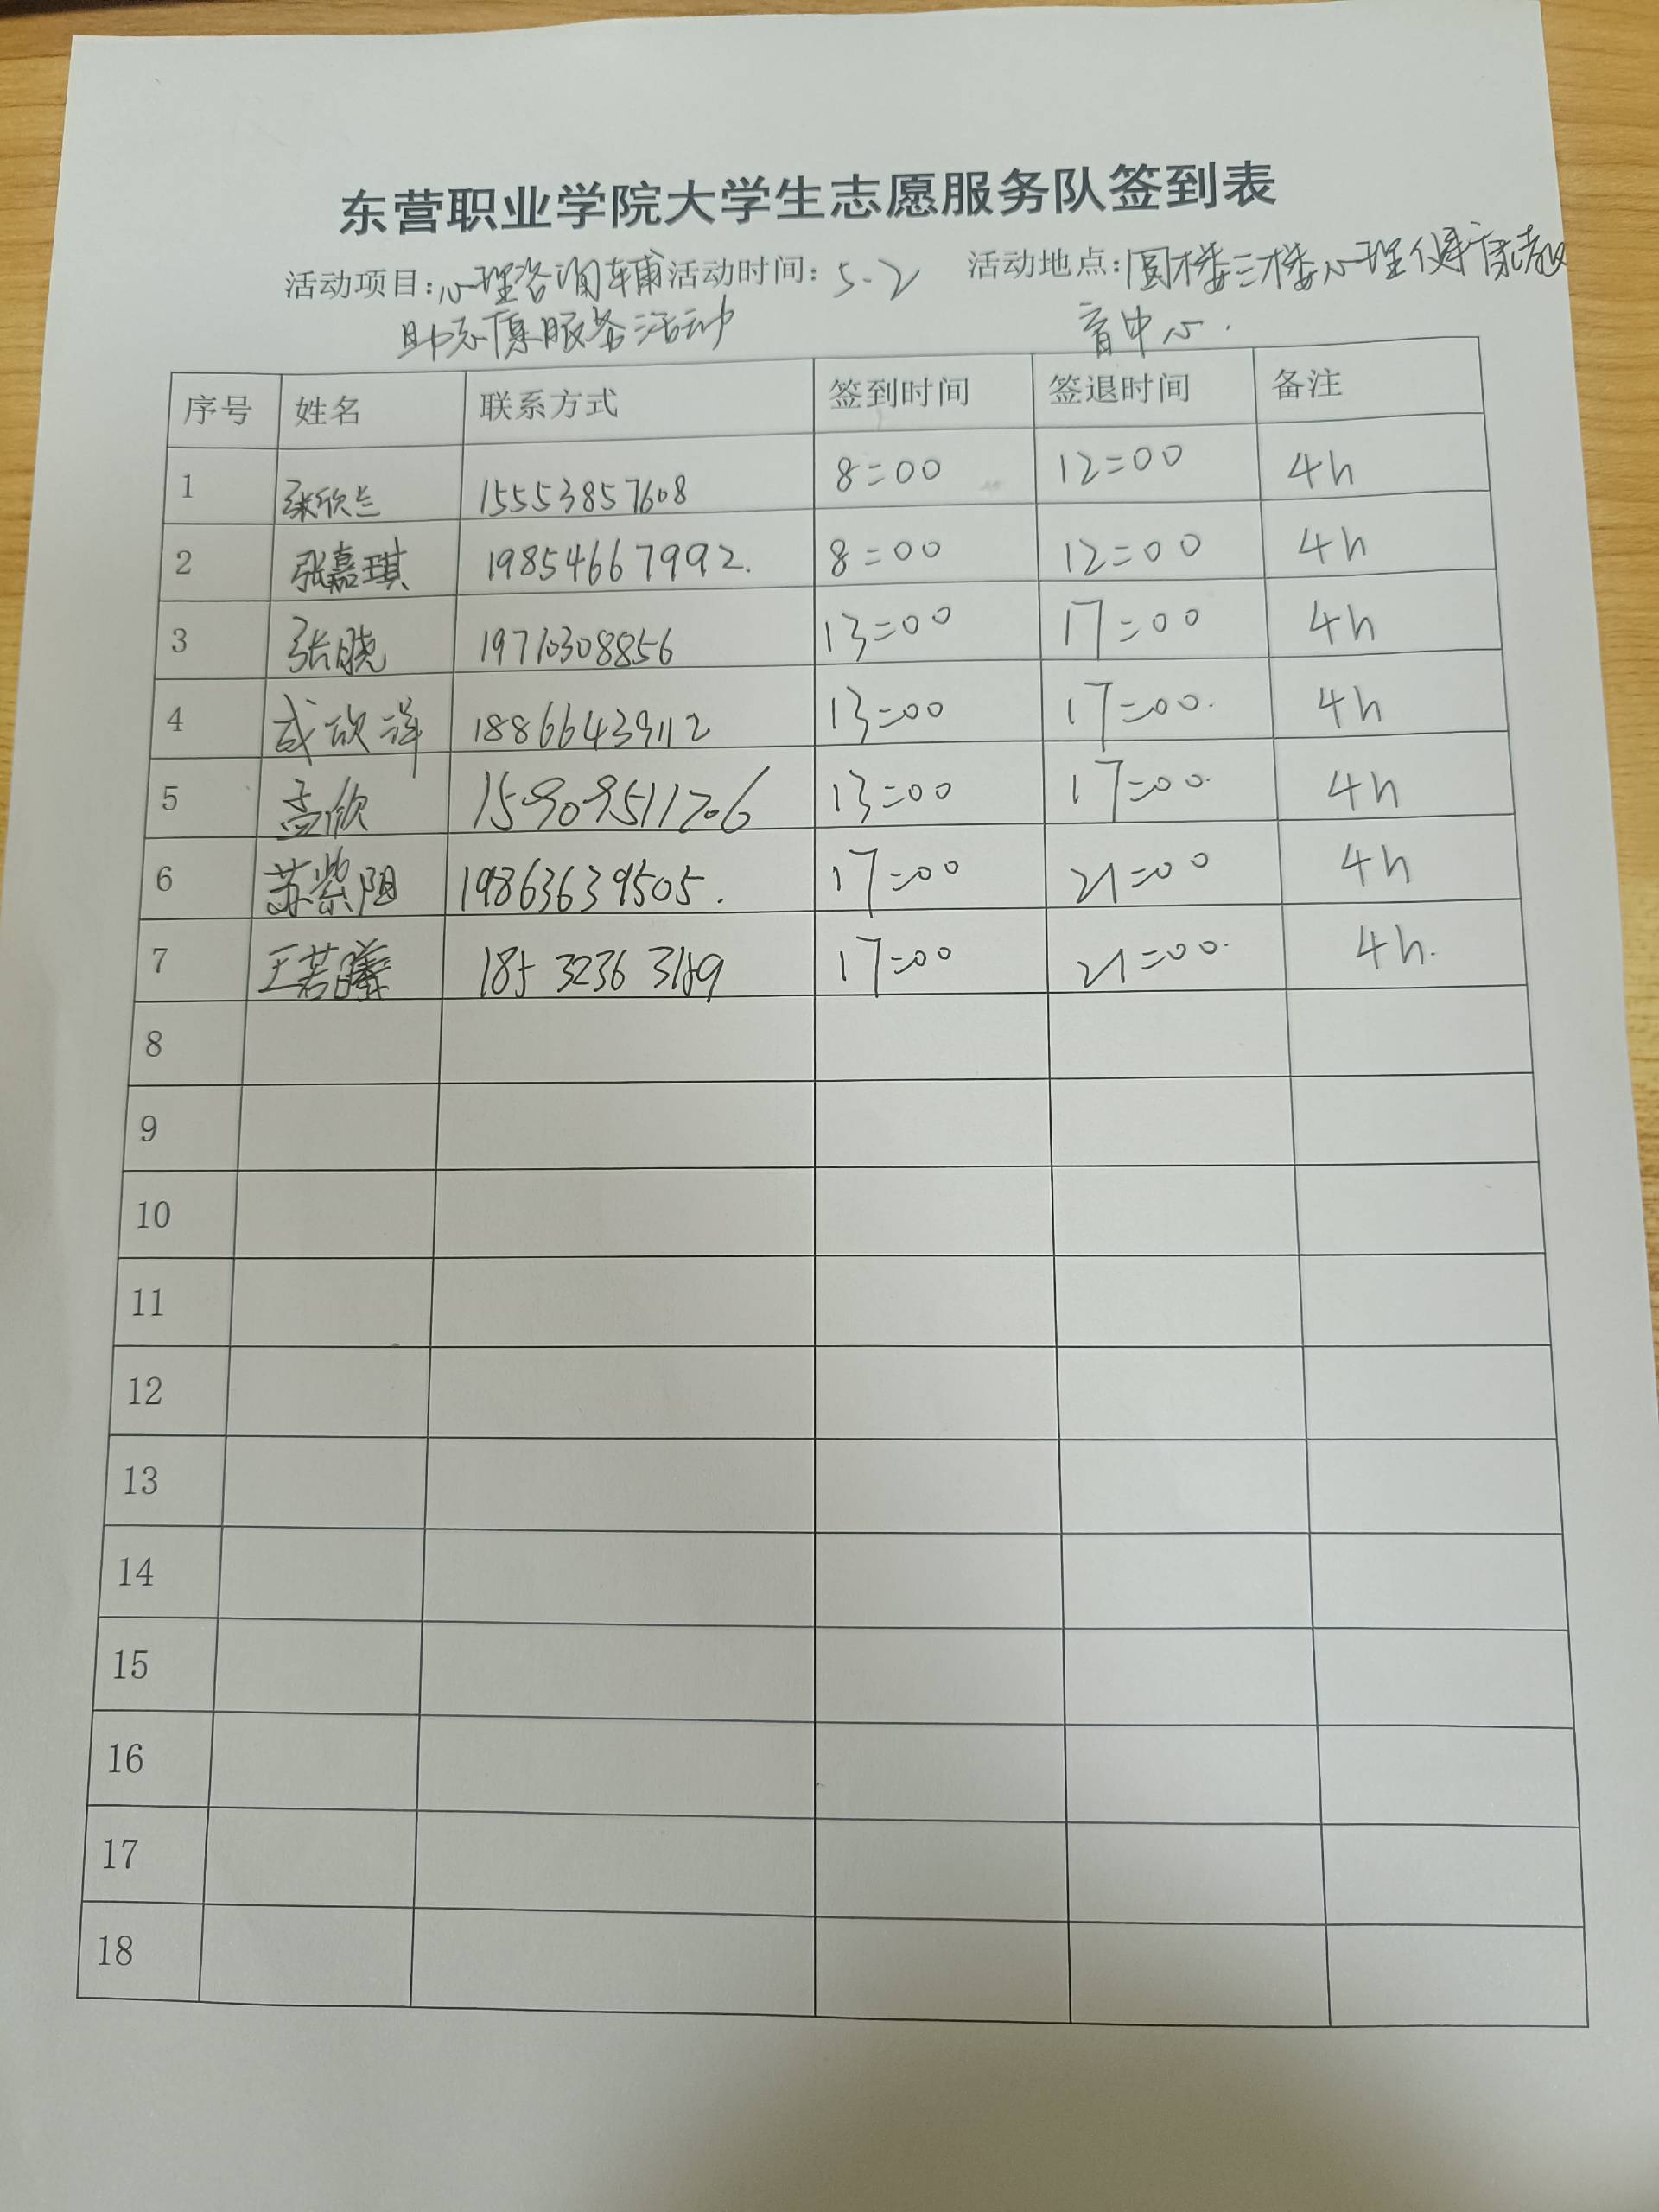 东营职业学院大学生志愿服务队签到表
活动项目:心理咨询辅 活动时间: 5.2 活动地点:圆楼三楼心理健康教
助志愿服务活动 育中心.
序号 姓名 联系方式 签到时间 签退时间 备注
1 张欣兰 15553857608 8:00 12:00 4h
2 张嘉琪 19854667992. 8:00 12:00 4h
3 张晓 19710308856 13:00 17:00 4h
4 欣洋 18866439112 13:00 17:00. 4h
5 孟欣 15909511706 13:00 17:00. 4h
6 苏紫阳 19863639505. 17:00 21:00 4h
7 王若曦 185 3236 3189 17:00 21:00. 4h.
8
9
10
11
12
13
14
15
16
17
18